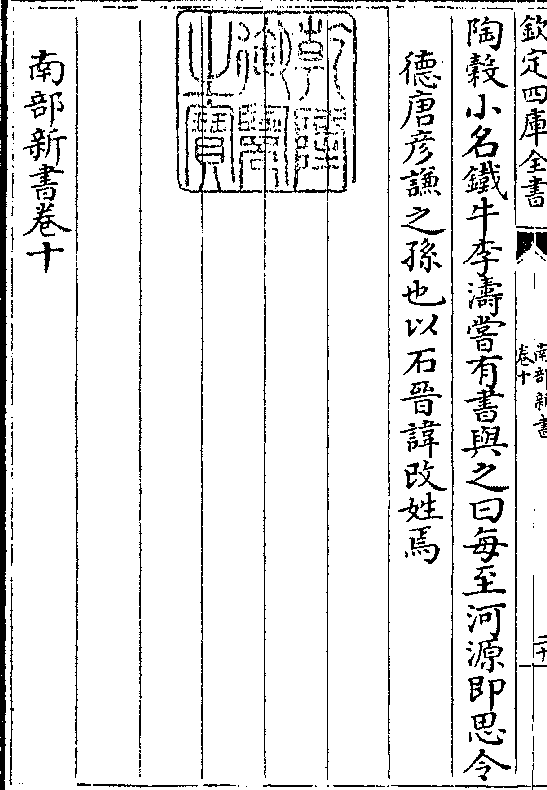 欽定四庫全書
南部新書
卷十
二十
陶穀小名鐵牛李濤嘗有書與之曰每至河源即思令
德唐彦謙之孫也以石晉諱改姓焉
乾隆
御覽
之寳
南部新書卷十